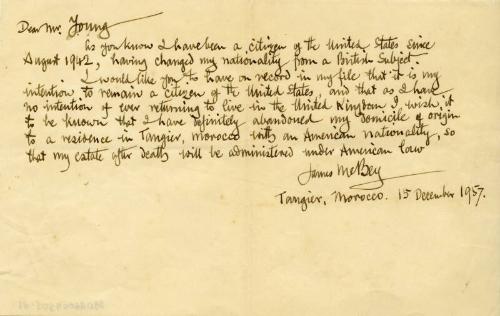 Dear Mr. Young
As you know I have been a citizen of the United States since
August 1942, having changed my nationality from a British Subject.
I would like you to have on record in my file that it is my
intention to remain a citizen of the United States, and that as I have
no intention of ever returning to live in the United Kingdom I wish it
to be known that I have definitely abandoned my domicile of origin
to a residence in Tangier, Morocco with an American nationality, so
that my estate after death will be administered under American law
James McBey
Tangier, Morocco. 15 December 1957.